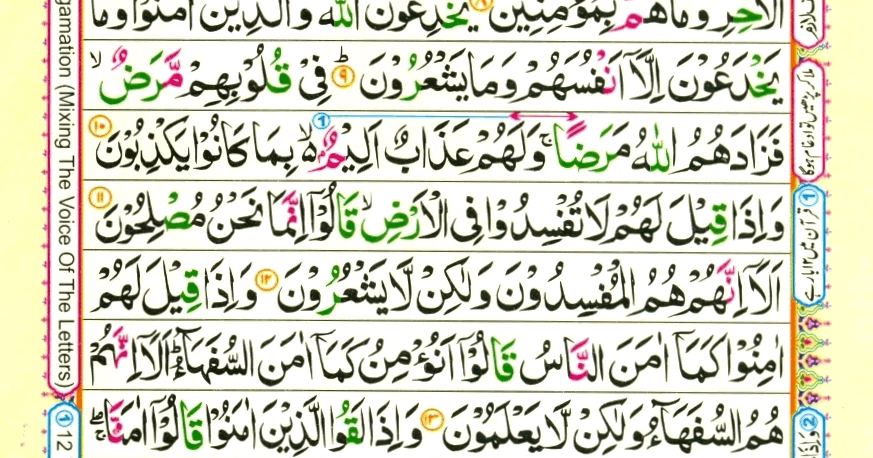 الْاٰخِرِ وَمَا هُمْ بِمُؤْمِنِيْنَ ۘ ۸ يُخٰدِعُوْنَ اللّٰهَ وَالَّذِيْنَ اٰمَنُوْا وَمَا
يَخْدَعُوْنَ اِلَّاۤ اَنْفُسَهُمْ وَمَا يَشْعُرُوْنَ ؕ ۹ فِيْ قُلُوْبِهِمْ مَّرَضٌ ۙ
فَزَادَهُمُ اللّٰهُ مَرَضًا ۚ وَلَهُمْ عَذَابٌ اَلِيْمٌۢ ۙ۬ بِمَا كَانُوْا يَكْذِبُوْنَ ۱۰
وَاِذَا قِيْلَ لَهُمْ لَا تُفْسِدُوْا فِي الْاَرْضِ ۙ قَالُوْۤا اِنَّمَا نَحْنُ مُصْلِحُوْنَ ۱۱
اَلَاۤ اِنَّهُمْ هُمُ الْمُفْسِدُوْنَ وَلٰكِنْ لَّا يَشْعُرُوْنَ ۱۲ وَاِذَا قِيْلَ لَهُمْ
اٰمِنُوْا كَمَاۤ اٰمَنَ النَّاسُ قَالُوْۤا اَنُؤْمِنُ كَمَاۤ اٰمَنَ السُّفَهَآءُ ؕ اَلَاۤ اِنَّهُمْ
هُمُ السُّفَهَآءُ وَلٰكِنْ لَّا يَعْلَمُوْنَ ۱۳ وَاِذَا لَقُوا الَّذِيْنَ اٰمَنُوْا قَالُوْۤا اٰمَنَّا ۖۚ
gamation (Mixing The Voice Of The Letters)
① 12
ملا کر پڑھیں تو ادغام ہوگا
① قرآن میں ۱۲ بارے